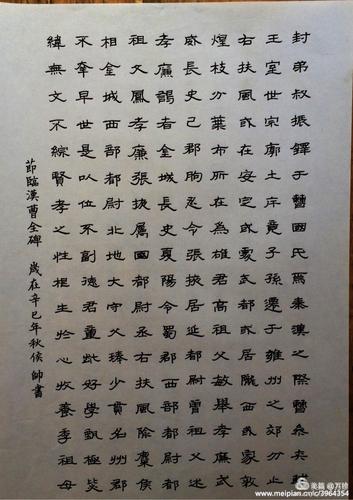 封弟叔振鐸于曹國氏焉秦漢之際曹参夾輔
王室世宗廓土斥竟子孫遷于雍州之郊分止
右扶風或在安定或處武都或居隴西或家敦
煌枝分葉布所在為雄君高祖父敏舉孝廉武
威長史巴郡朐忍令張掖居延都尉曾祖父述
孝廉謁者金城長史夏陽令蜀郡西部都尉
祖父鳳孝廉張掖屬國都尉丞右扶風隃麋侯
相金城西部都尉北地大守父琫少貫名州郡
不幸早世是以位不副德君童齔好學甄極毖
緯無文不綜賢孝之性根生於心收養季祖母
節臨漢曹全碑 歲在辛巳年秋侯帥書
美篇
www.meipian.me/3964354